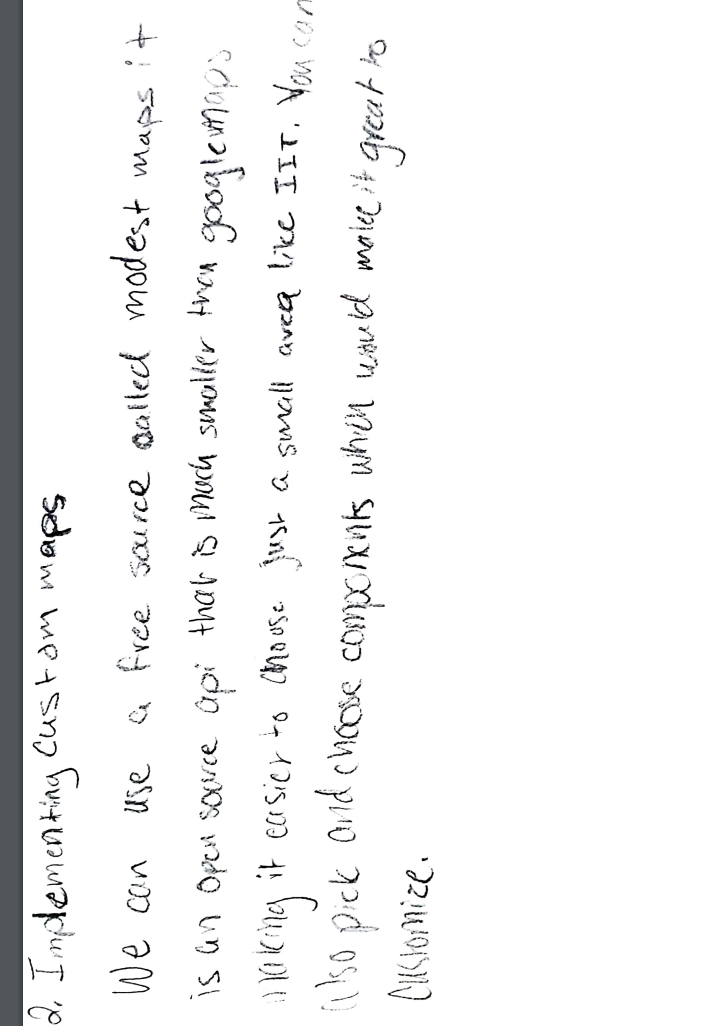 2. Implementing Custom maps
We can use a free source called modest maps it
is an open source api that is much smaller than googlemaps
making it easier to choose just a small area like IIT. You can
also pick and choose components which would make it great to
customize.